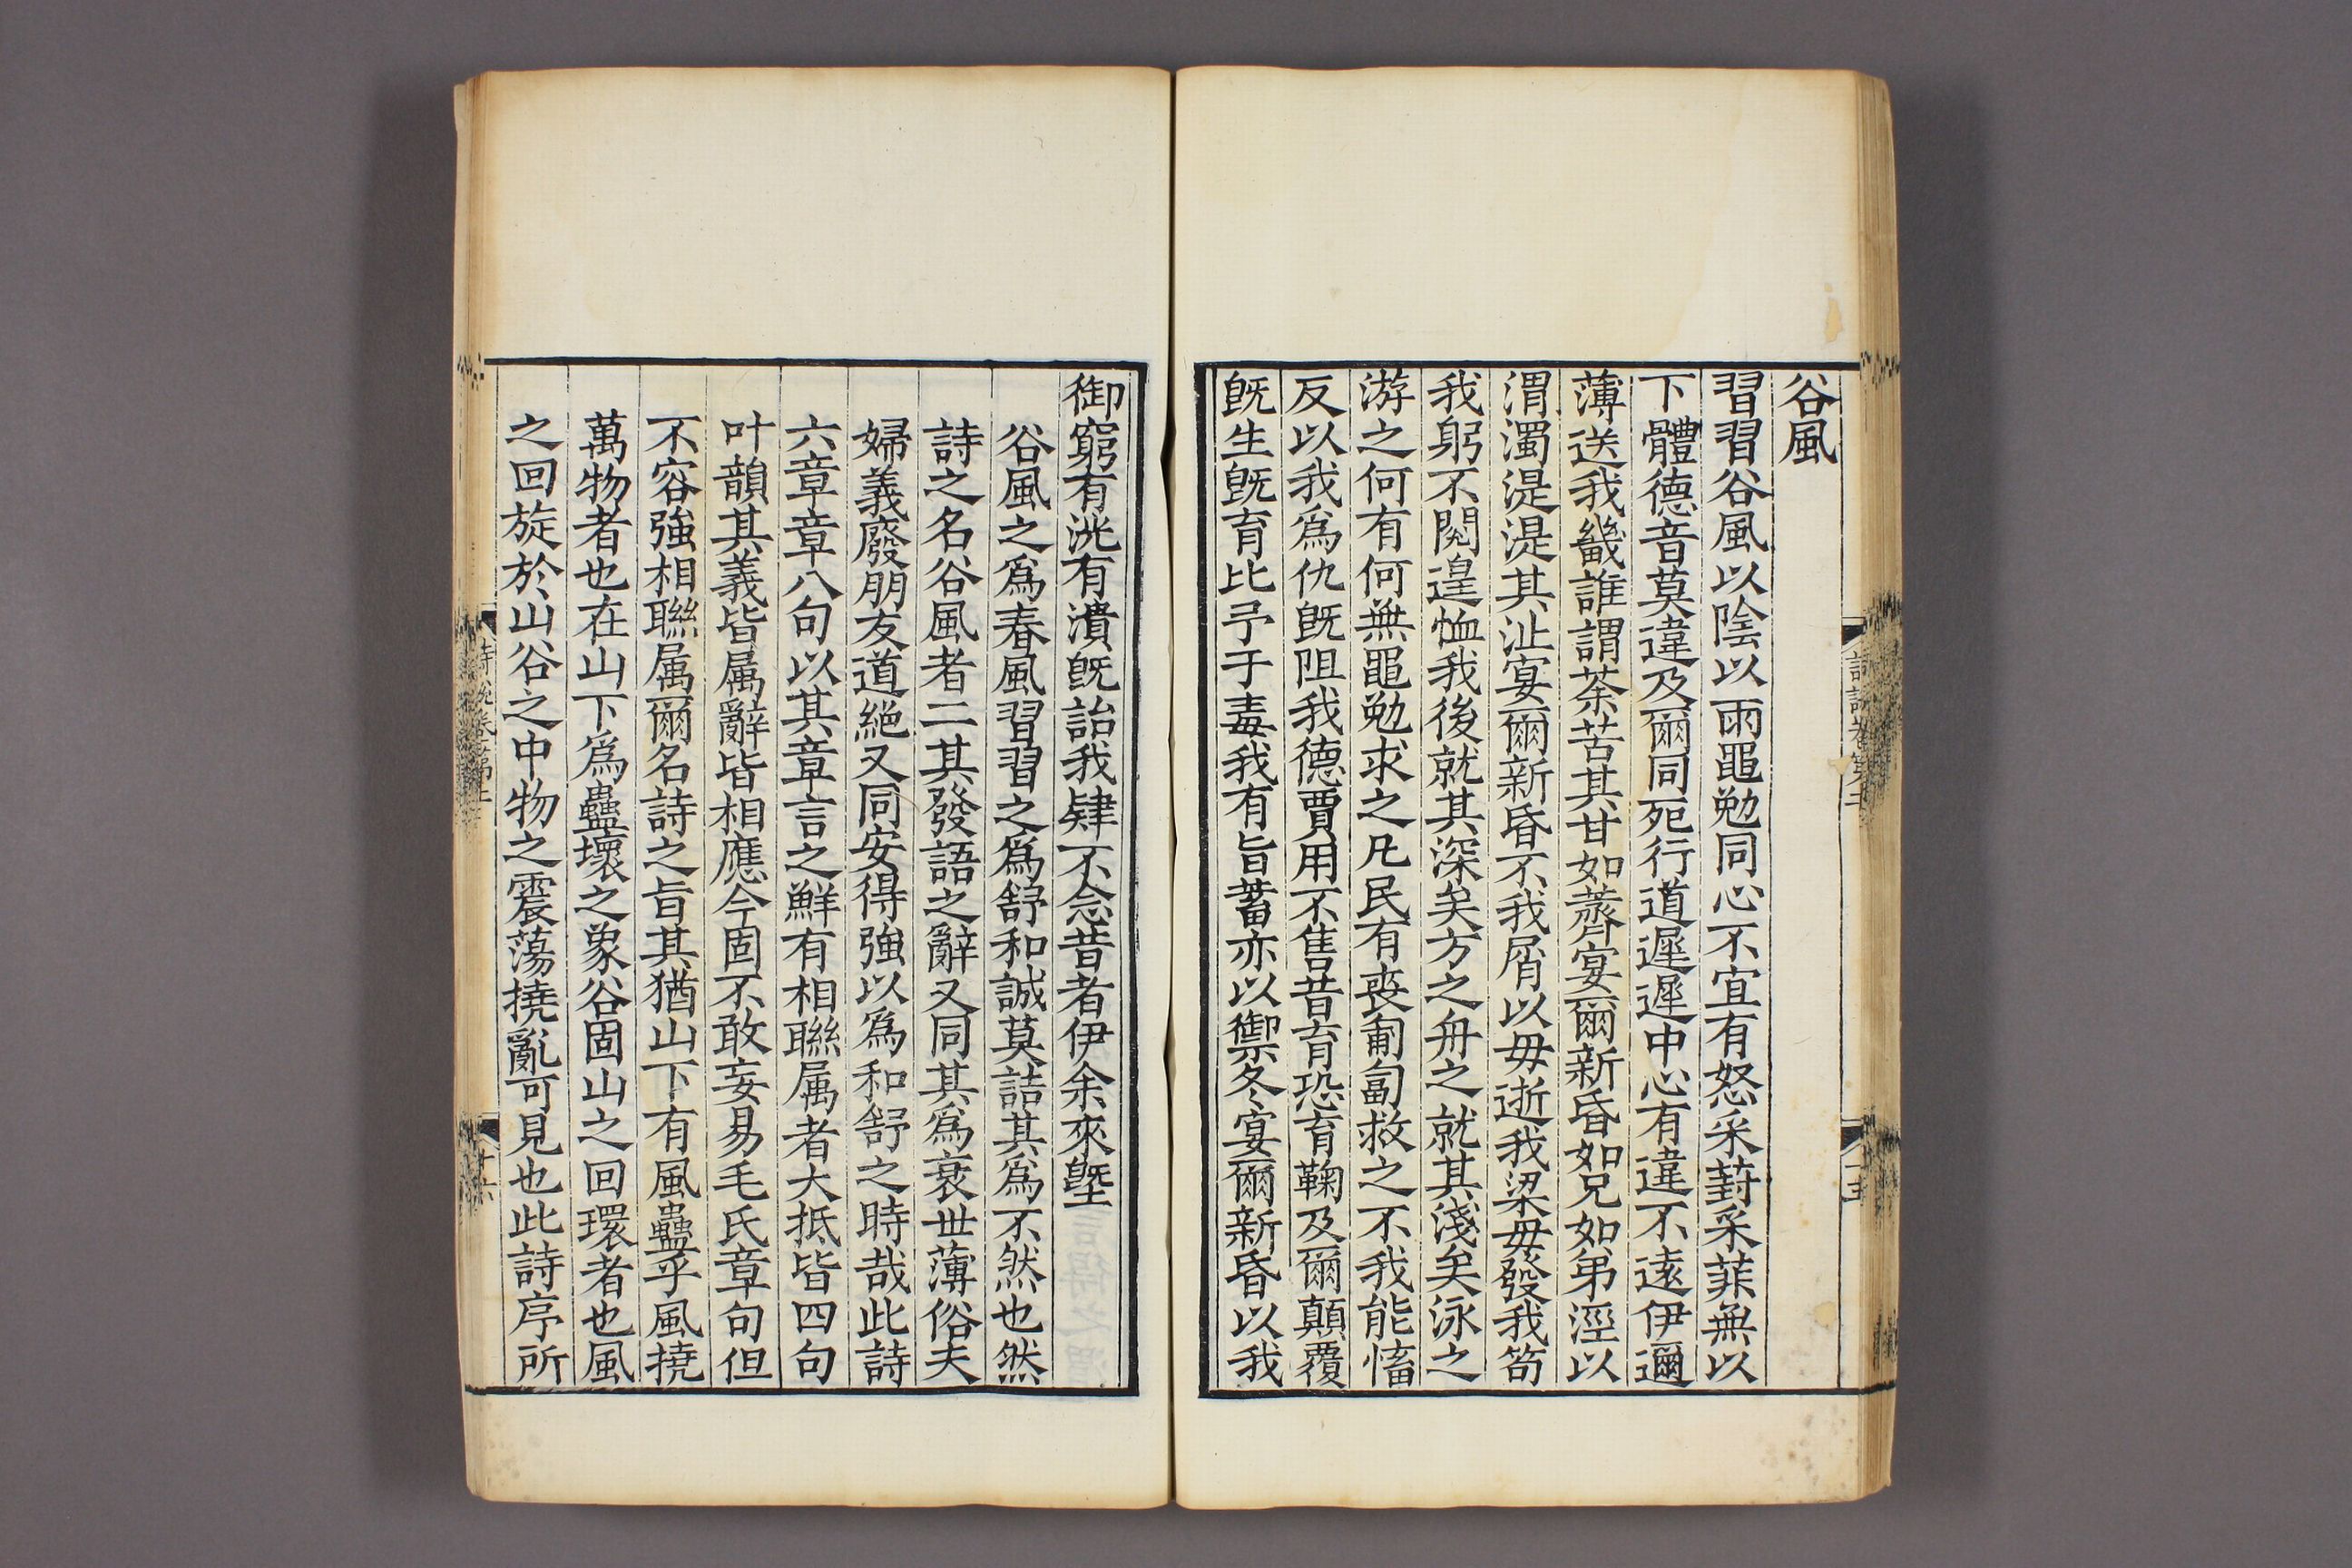 谷風
習習谷風以陰以雨黽勉同心不宜有怒采葑采菲無以
下體德音莫違及爾同死行道遲遲中心有違不遠伊邇
薄送我畿誰謂荼苦其甘如薺宴爾新昏如兄如弟涇以
渭濁湜湜其沚宴爾新昏不我屑以毋逝我梁毋發我笱
我躬不閱遑恤我後就其深矣方之舟之就其淺矣泳之
游之何有何無黽勉求之凡民有喪匍匐救之不我能慉
反以我為仇既阻我德賈用不售昔育恐育鞠及爾顛覆
既生既育比予于毒我有旨蓄亦以禦冬宴爾新昏以我
御窮有洸有潰既詒我肄不念昔者伊余來塈
谷風之為春風習習之為舒和誠莫詰其為不然也然
詩之名谷風者二其發語之辭又同其為衰世薄俗夫
婦義廢朋友道絕又同安得強以為和舒之時哉此詩
六章章八句以其章言之鮮有相聯属者大抵皆四句
叶韻其義皆属辭皆相應今固不敢妄易毛氏章句但
不容強相聯属爾名詩之旨其猶山下有風蠱乎風撓
萬物者也在山下為蠱壞之象谷固山之回環者也風
之回旋於山谷之中物之震蕩撓亂可見也此詩序所